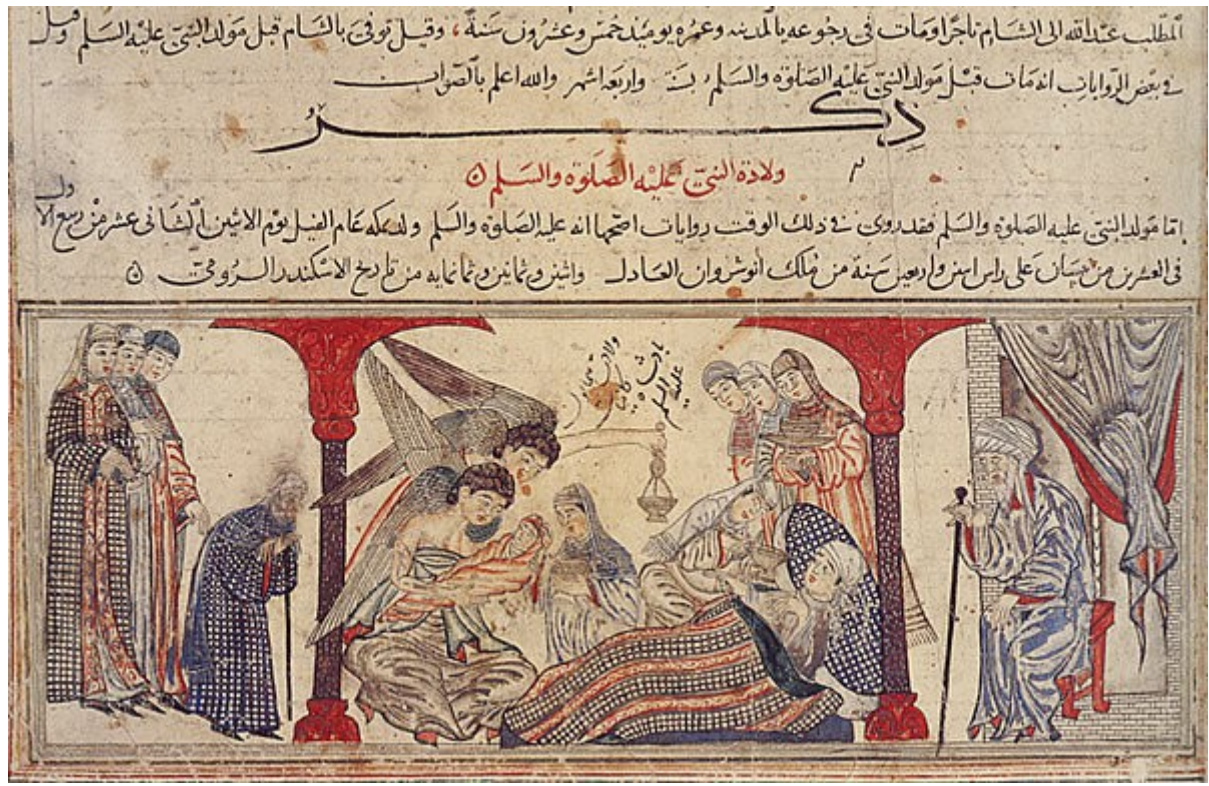 المطلب عبد الله الى الشام تاجرا ومات فى رجوعه بالمدينه وعمره يومئذ خمس وعشرون سنة، وقيل توفى بالشام قبل مولد النبى عليه السلم وقيل
فى بعض الروايات انه مات قبل مولد النبى عليه الصلوة والسلم واربعة اشهر والله اعلم بالصواب
ذكر
ولادة النبى عليه الصلوة والسلم
اما مولد النبى عليه الصلوة والسلم فقد روى فى ذلك الوقت روايات اصحها انه عليه الصلوة والسلم ولد بمكه عام الفيل يوم الاثنين الثانى عشر من ربيع الاول
فى العشرين من نيسان على راس اثنين واربعين سنة من ملك انوشروان العادل واثنين وثمانين وثمانمايه من تاريخ الاسكندر الرومى
ولادت
عليه السلم